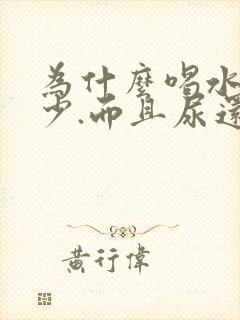 為什麼喝水
少.而且尿還
黃行偉